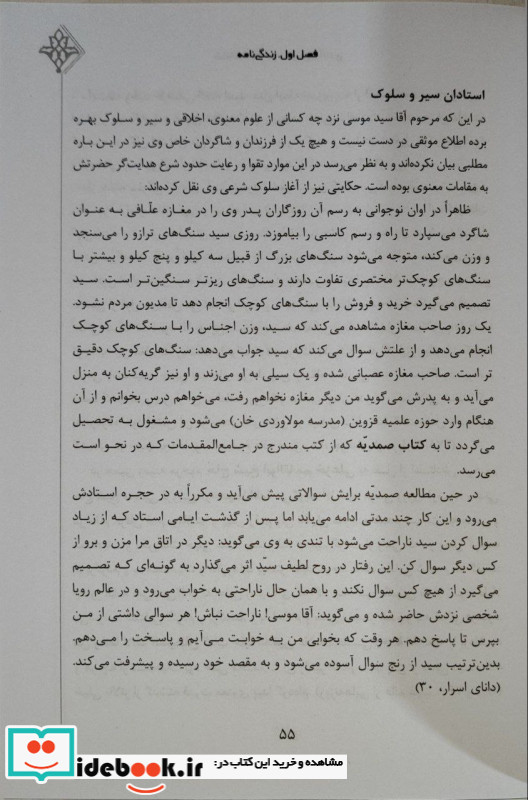 فصل اول. زندگی‌نامه
استادان سیر و سلوک
در این که مرحوم آقا سید موسی نزد چه کسانی از علوم معنوی، اخلاقی و سیر و سلوک بهره
برده اطلاع موثقی در دست نیست و هیچ یک از فرزندان و شاگردان خاص وی نیز در این باره
مطلبی بیان نکرده‌اند و به نظر می‌رسد در این موارد تقوا و رعایت حدود شرع هدایت‌گر حضرتش
به مقامات معنوی بوده است. حکایتی نیز از آغاز سلوک شرعی وی نقل کرده‌اند:
ظاهراً در اوان نوجوانی به رسم آن روزگاران پدر وی را در مغازه علّافی به عنوان
شاگرد می‌سپارد تا راه و رسم کاسبی را بیاموزد. روزی سید سنگ‌های ترازو را می‌سنجد
و وزن می‌کند، متوجه می‌شود سنگ‌های بزرگ از قبیل سه کیلو و پنج کیلو و بیشتر با
سنگ‌های کوچک‌تر مختصری تفاوت دارند و سنگ‌های ریزتر سنگین‌تر است. سید
تصمیم می‌گیرد خرید و فروش را با سنگ‌های کوچک انجام دهد تا مدیون مردم نشود.
یک روز صاحب مغازه مشاهده می‌کند که سید، وزن اجناس را با سنگ‌های کوچک
انجام می‌دهد و از علتش سوال می‌کند که سید جواب می‌دهد: سنگ‌های کوچک دقیق
تر است. صاحب مغازه عصبانی شده و یک سیلی به او می‌زند و او نیز گریه‌کنان به منزل
می‌آید و به پدرش می‌گوید من دیگر مغازه نخواهم رفت، می‌خواهم درس بخوانم و از آن
هنگام وارد حوزه علمیه قزوین (مدرسه مولاوردی خان) می‌شود و مشغول به تحصیل
می‌گردد تا به کتاب صمدیّه که از کتب مندرج در جامع‌المقدمات که در نحو است
می‌رسد.
در حین مطالعه صمدیّه برایش سوالاتی پیش می‌آید و مکرراً به در حجره استادش
می‌رود و این کار چند مدتی ادامه می‌یابد اما پس از گذشت ایامی استاد که از زیاد
سوال کردن سید ناراحت می‌شود با تندی به وی می‌گوید: دیگر در اتاق مرا مزن و برو از
کس دیگر سوال کن. این رفتار در روح لطیف سیّد اثر می‌گذارد به گونه‌ای که تصمیم
می‌گیرد از هیچ کس سوال نکند و با همان حال ناراحتی به خواب می‌رود و در عالم رویا
شخصی نزدش حاضر شده و می‌گوید: آقا موسی! ناراحت نباش! هر سوالی داشتی از من
بپرس تا پاسخ دهم. هر وقت که بخوابی من به خوابت می‌آیم و پاسخت را می‌دهم.
بدین‌ترتیب سید از رنج سوال آسوده می‌شود و به مقصد خود رسیده و پیشرفت می‌کند.
(دانای اسرار، ۳۰)
۵۵
مشاهده و خرید این کتاب در:
idebook.ir